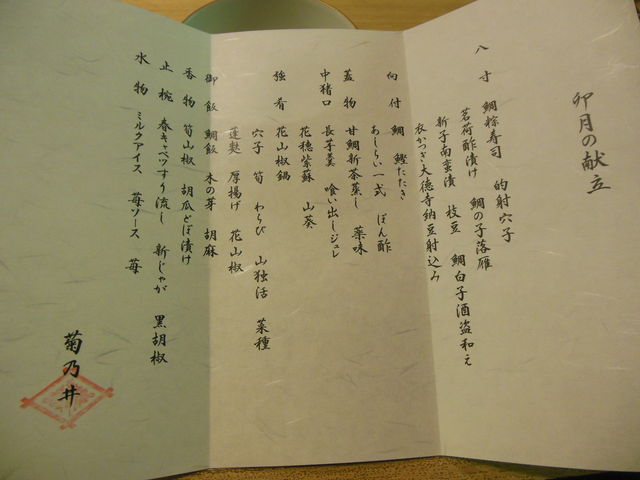 卯月の献立
八寸 鯛粽寿司 的射穴子
茗荷酢漬け 鯛の子落雁
新子南蛮漬 枝豆 鯛白子酒盗和え
衣かつぎ大徳寺納豆射込み
向付 鯛 鰹たたき
あしらい一式 ぽん酢
蓋物 甘鯛新茶蒸し 薬味
中猪口 長芋羹 喰い出しジュレ
花穂紫蘇 山葵
強肴 花山椒鍋
穴子 筍 わらび 山独活 菜種
蓬麩 厚揚げ 花山椒
御飯 鯛飯 木の芽 胡麻
香物 筍山椒 胡瓜どぼ漬け
止椀 春キャベツすり流し 新じゃが 黒胡椒
水物 ミルクアイス 苺ソース 苺
菊乃井